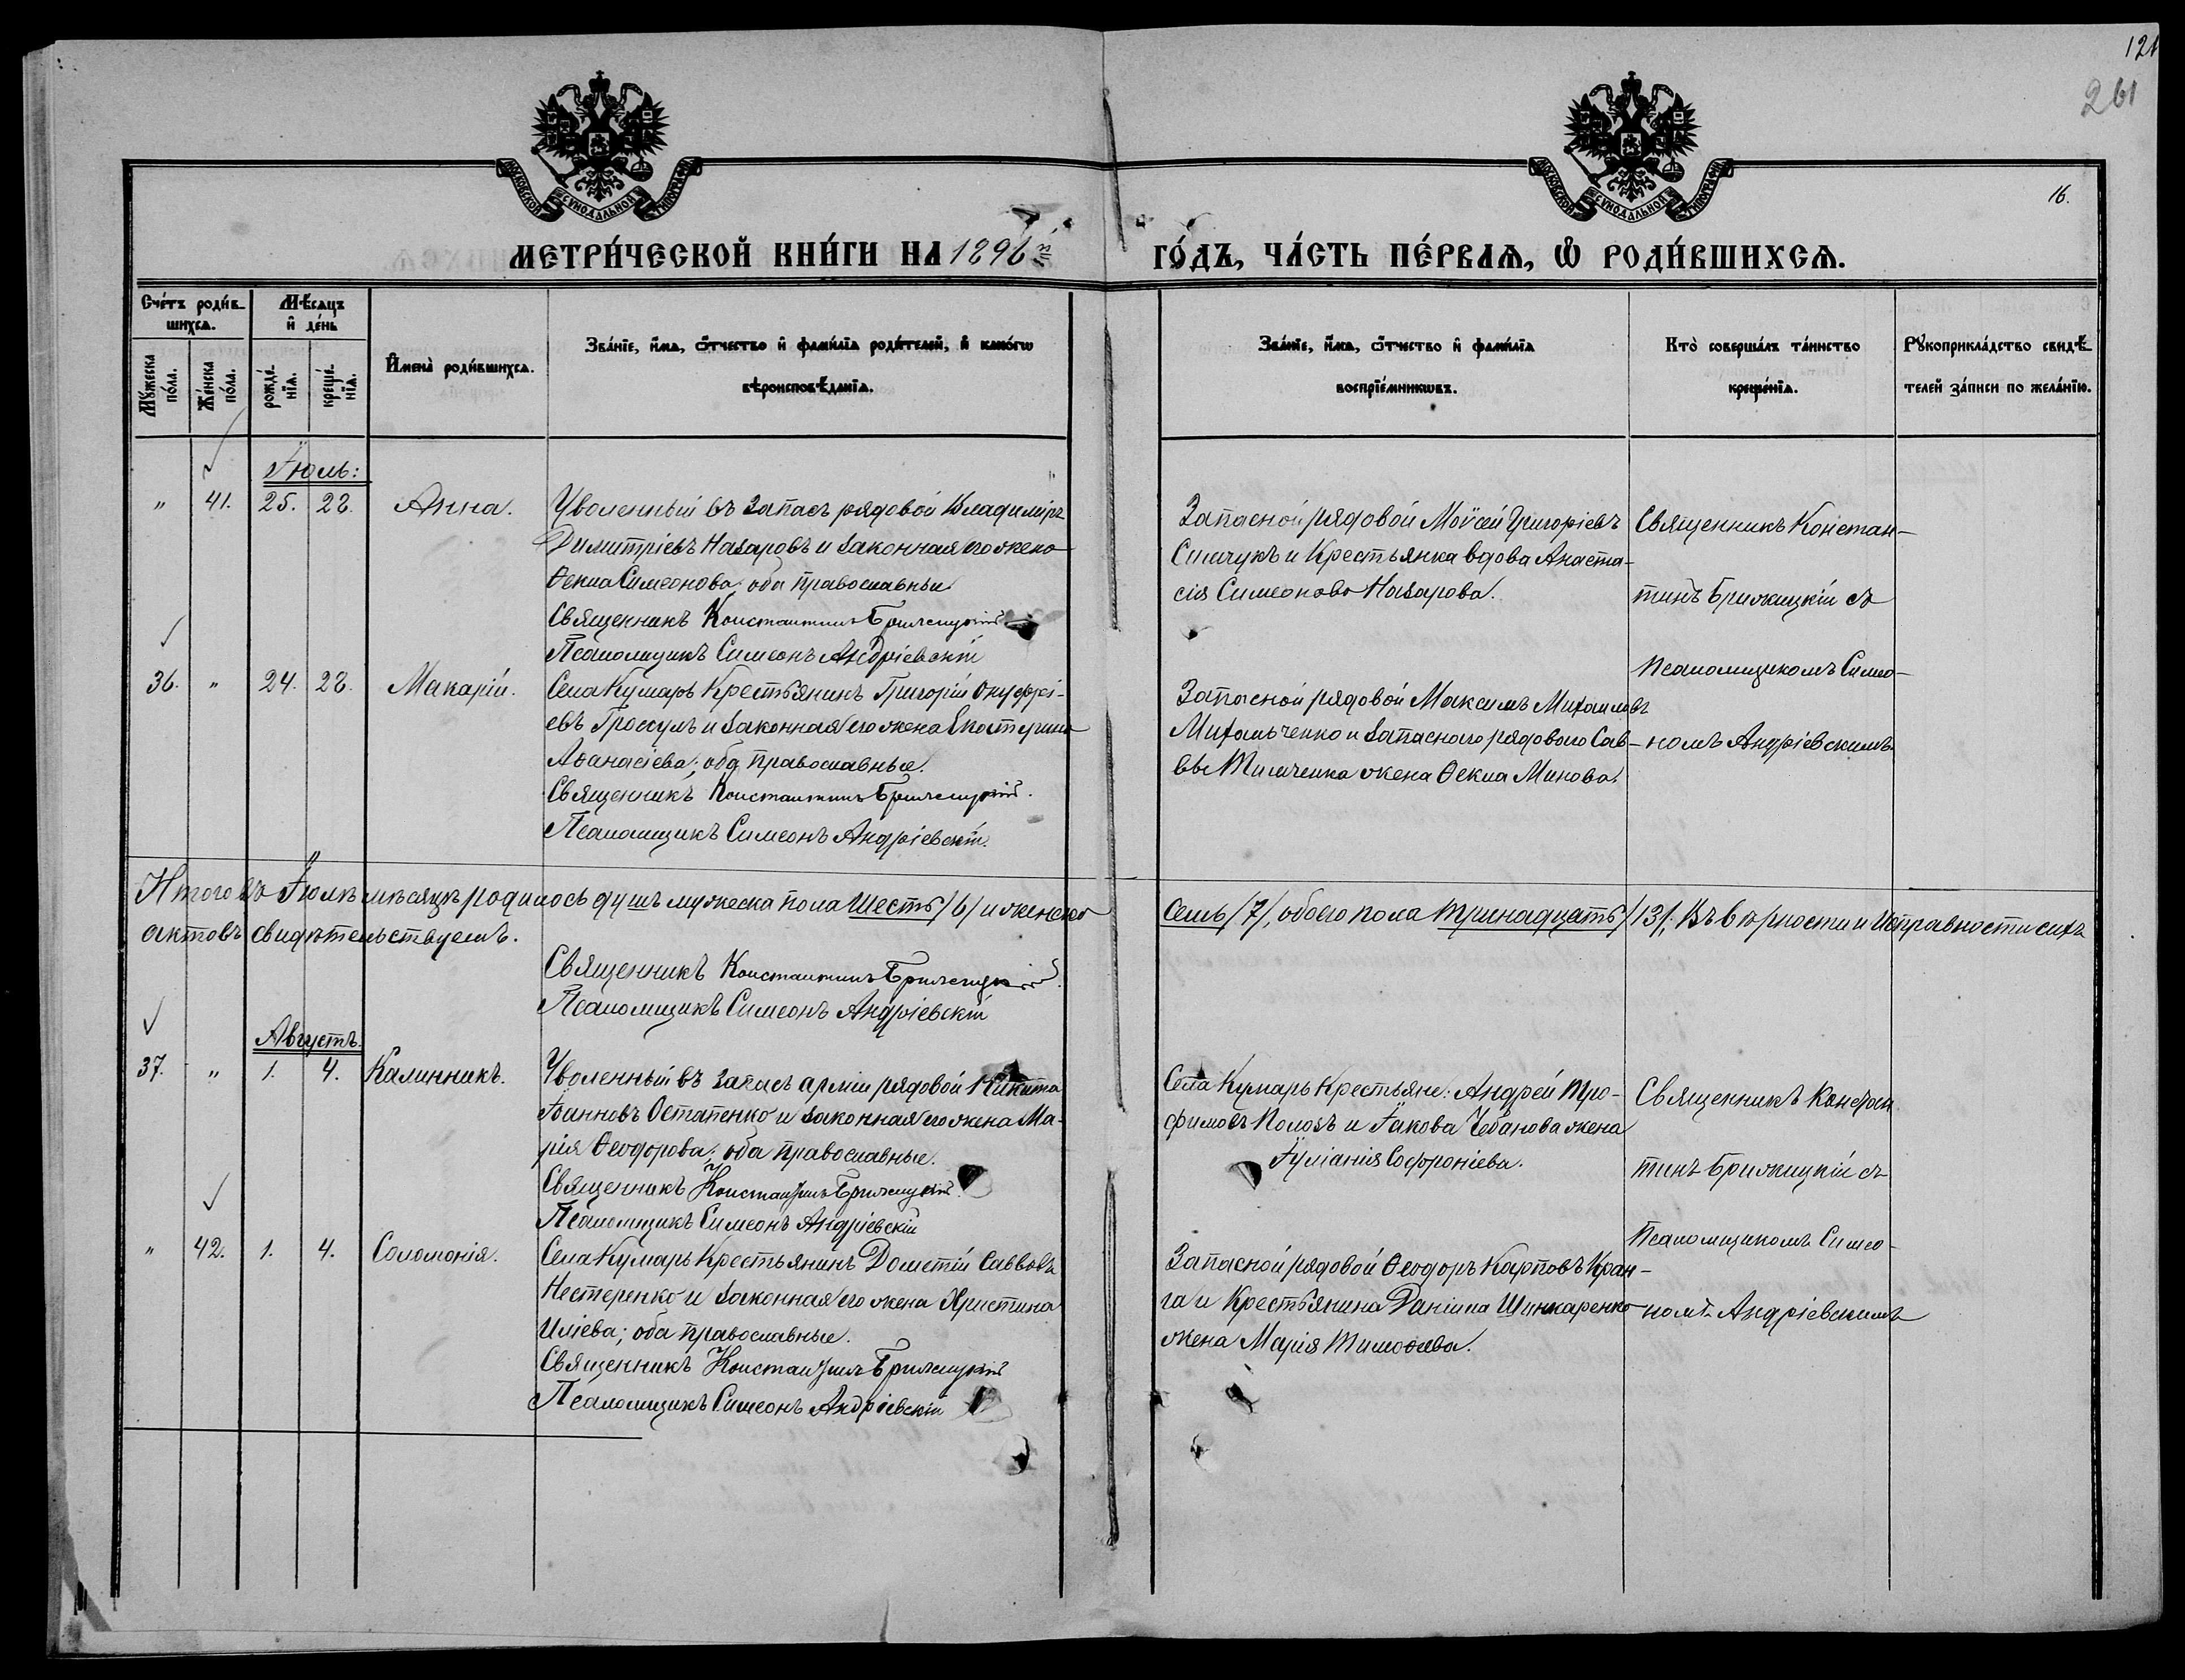 121
261
МОСКОВСКОЙ СѴНОДАЛЬНОЙ ТИПОГРАФІИ
МОСКОВСКОЙ СѴНОДАЛЬНОЙ ТИПОГРАФІИ
16.
МЕТРИ́ЧЕСКОЙ КНИ́ГИ НА 1896й
ГО́ДЪ, ЧА́СТЬ ПЕ́РВАѦ, Ѡ҆ РОДИ́ВШИХСѦ.
Сче́тъ роди́в-
шихсѧ.
Мѣ́сѧцъ
и҆ де́нь
Мꙋ́жеска по́ла.
Же́нска по́ла.
рожде́-нїѧ.
креще́-нїѧ.
И҆мена̀ роди́вшихсѧ.
Зва́нїе, и҆́мѧ, ѻ҆́тчество и҆ фами́лїѧ роди́телей, и҆ како́гѡ
вѣроисповѣ́данїѧ.
Зва́нїе, и҆́мѧ, ѻ҆́тчество и҆ фами́лїѧ
воспрїе́мникѡвъ.
Кто̀ соверша́лъ та́инство
креще́нїѧ.
Рꙋкоприкла́дство свидѣ́-
телей за́писи по жела́нїю.
Іюль:
" 41. 25. 28. Анна. Уволенный въ запасъ рядовой Владиміръ
Димитріевъ Назаровъ и законная его жена
Ѳекла Симеонова; оба православные
Священникъ Константинъ Брижицкій
Псаломщикъ Симеонъ Андріевскій
Запасной рядовой Моѵсей Григоріевъ
и Крестьянка вдова Анаста-
сія Симеонова Назарова.
Священникъ Констан-
тинъ Брижицкій съ
Псаломщикомъ Симео-
номъ Андріевскимъ
36. " 24. 28. Макарій. Села Кумаръ Крестьянинъ Григорій Онуфрі-
евъ Гроссулъ и законная его жена Екатерина
Аѳанасіева; оба православные.
Священникъ Константинъ Брижицкій.
Псаломщикъ Симеонъ Андріевскій.
Запасной рядовой Максимъ Михаиловъ
Михальченко и запаснаго рядового Сав-
вы Тимченка жена Ѳекла Минова.
Итого въ Іюлѣ мѣсяцѣ родилось душъ мужеска пола Шесть /6/ и женскаго
Семь /7/, обоего пола Тринадцать /13/; Въ вѣрности и исправности сихъ
актовъ свидѣтельствуемъ.
Священникъ Константинъ Брижицкій.
Псаломщикъ Симеонъ Андріевскій
Августъ.
37. " 1. 4. Калинникъ. Уволенный въ запасъ арміи рядовой Никита
Іоанновъ Остапенко и законная его жена Ма-
рія Ѳеодорова; оба православные.
Священникъ Константинъ Брижицкій.
Псаломщикъ Симеонъ Андріевскій
Села Кумаръ Крестьяне: Андрей Тро-
фимовъ Полозъ и Іакова Чебанова жена
Іуліанія Софроніева.
Священникъ Констан
тинъ Брижицкій съ
Псаломщикомъ Симео-
номъ Андріевскимъ
" 42. 1. 4. Соломонія. Села Кумаръ Крестьянинъ Дометій Саввовъ
Нестеренко и законная его жена Христина
Иліева; оба православные.
Священникъ Константинъ Брижицкій
Псаломщикъ Симеонъ Андріевскій
Запасной рядовой Ѳеодоръ Карповъ Кран-
га и Крестьянина Даніила Шинкаренко
жена Марія Тимоѳеева.